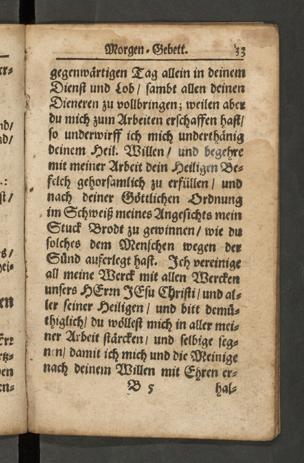 Morgen-Gebett. 33
gegenwärtigen Tag allein in deinem
Dienst und Lob/ sambt allen deinen
Dieneren zu vollbringen; weilen aber
du mich zum Arbeiten erschaffen hast/
so underwirff ich mich underthänig
deinem Heil. Willen/ und begehre
mit meiner Arbeit dein Heiligen Be-
felch gehorsamlich zu erfüllen/ und
nach deiner Göttlichen Ordnung
im Schweiß meines Angesichts mein
Stuck Brodt zu gewinnen/ wie du
solches dem Menschen wegen der
Sünd auferlegt hast. Ich vereinige
all meine Werck mit allen Wercken
unsers HErrn JEsu Christi/ und al-
ler seiner Heiligen/ und bitt demü-
thiglich/ du wöllest mich in aller mei-
ner Arbeit stärcken/ und selbige seg-
nen/ damit ich mich und die Meinige
nach deinem Willen mit Ehren er-
B 5 hal-